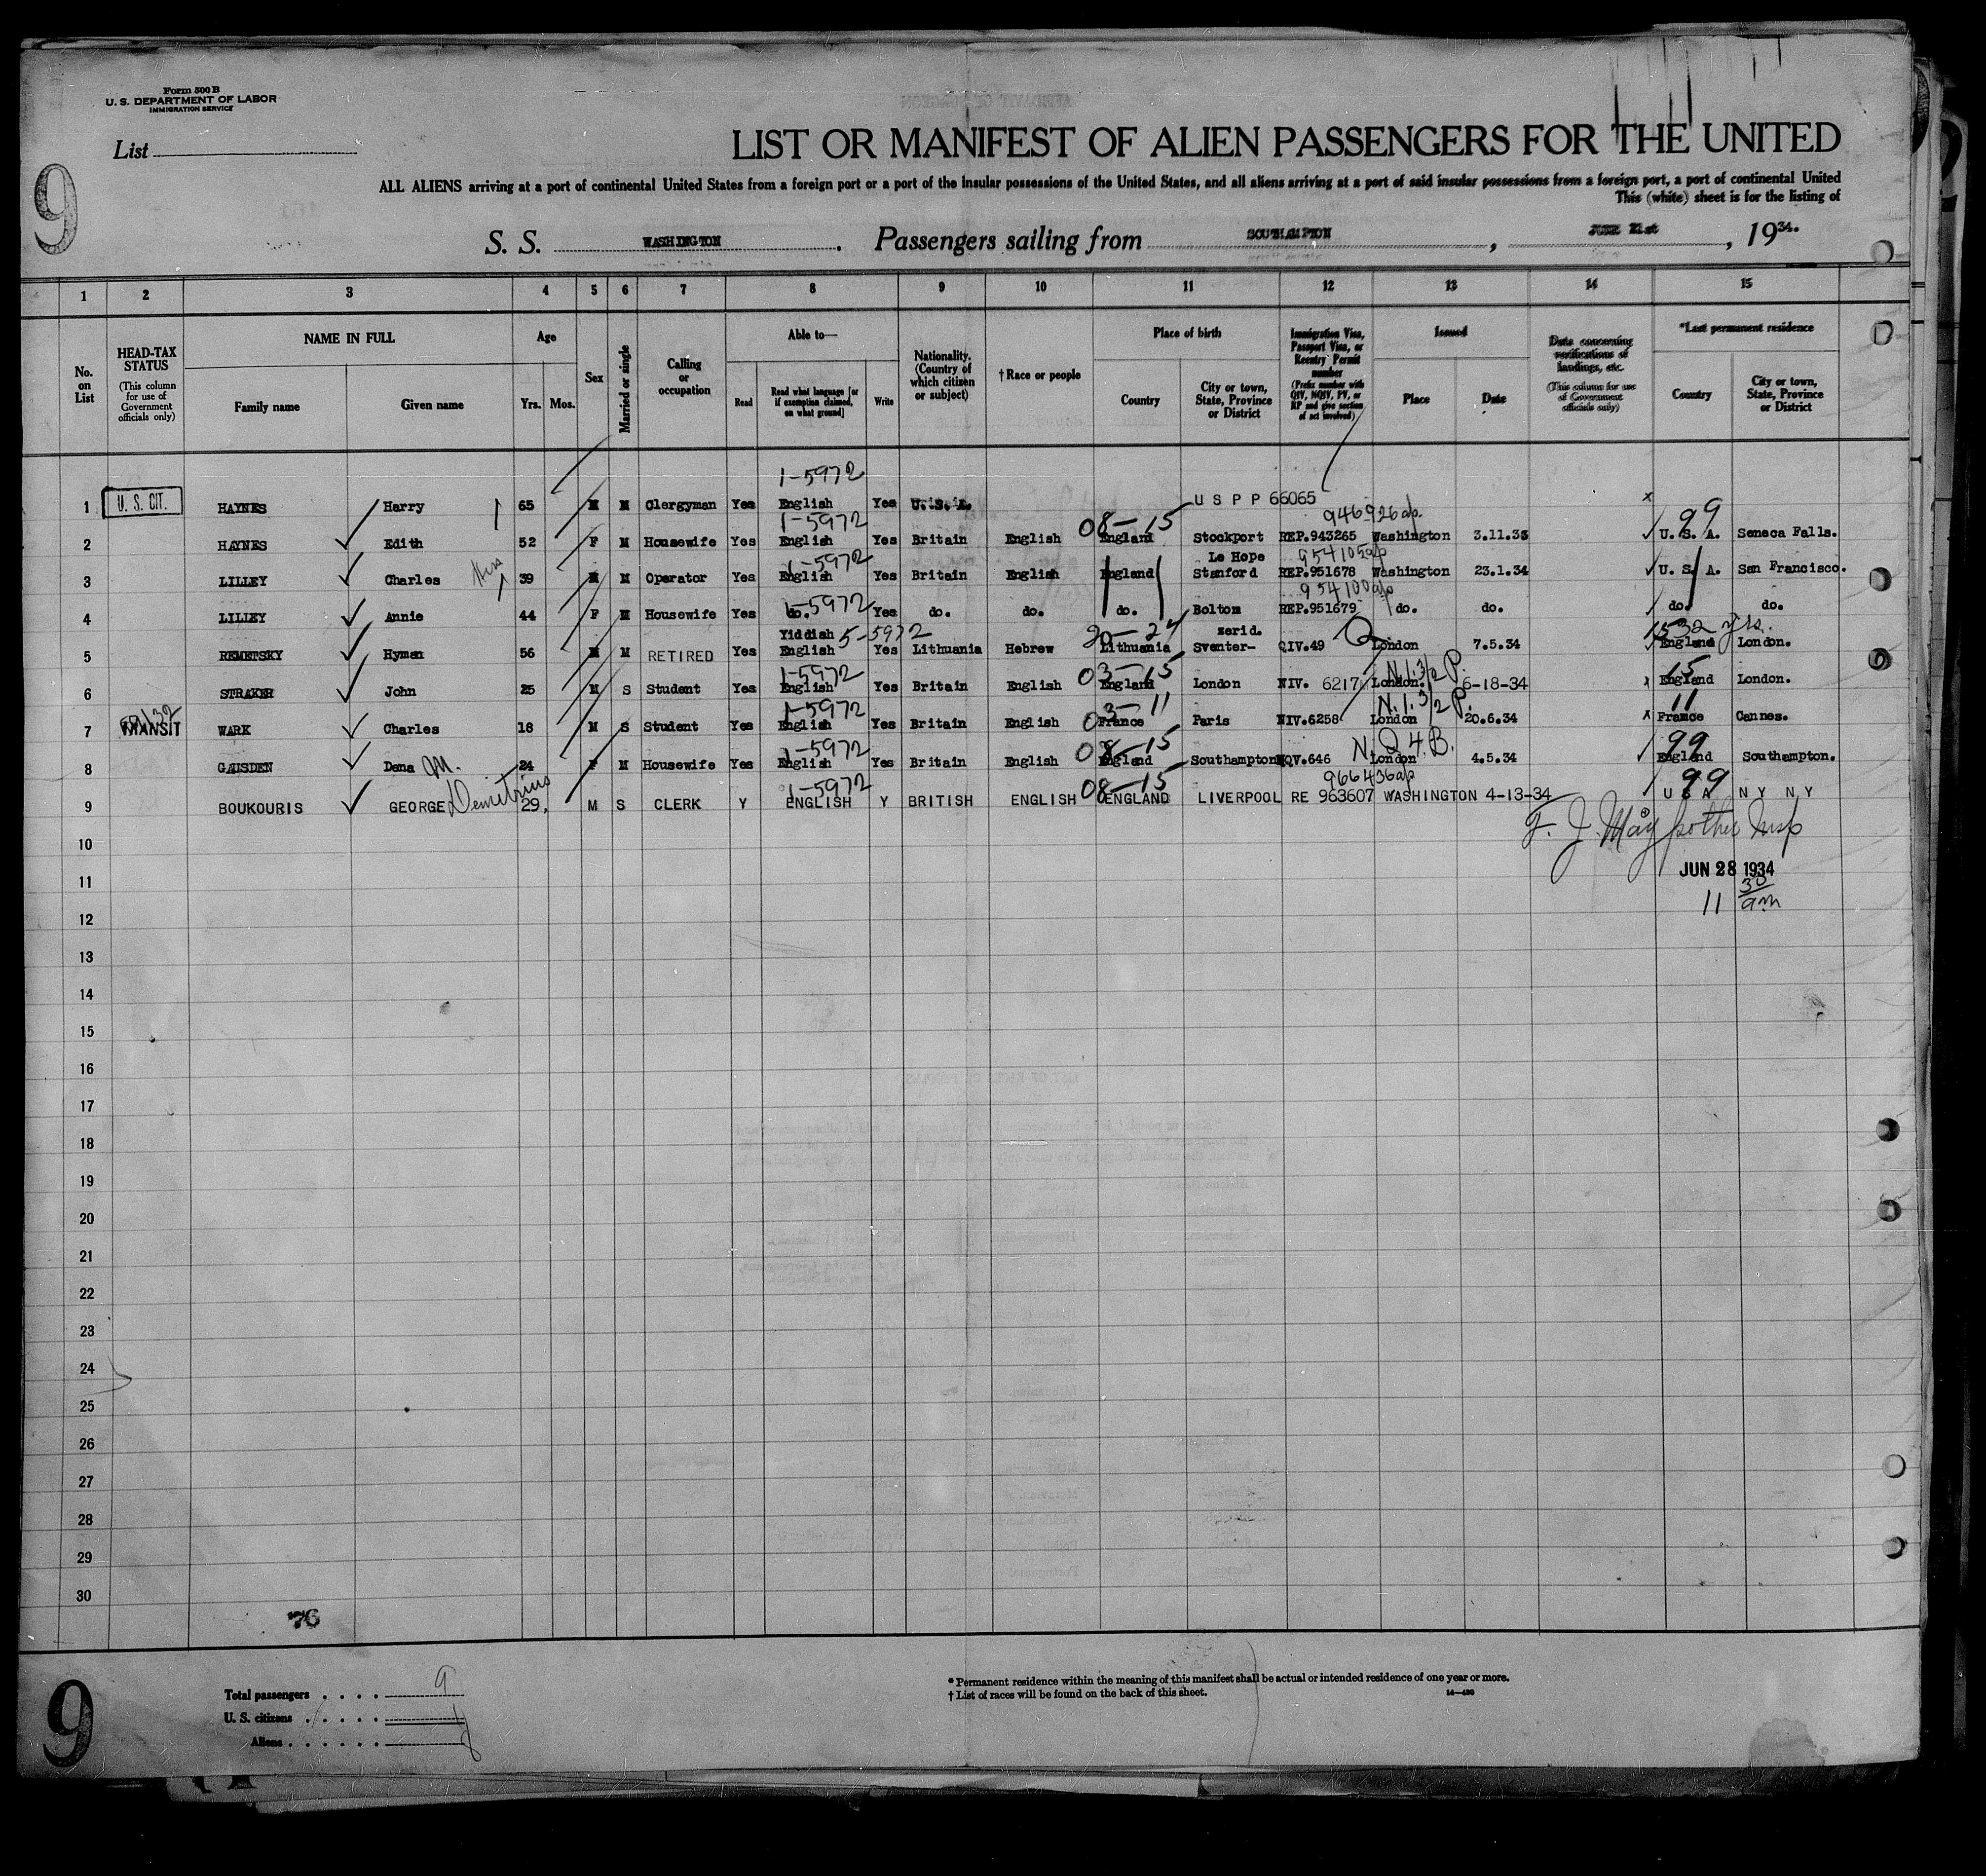 Form 500 B
U. S. DEPARTMENT OF LABOR
IMMIGRATION SERVICE
List
9
LIST OR MANIFEST OF ALIEN PASSENGERS FOR THE UNITED
ALL ALIENS arriving at a port of continental United States from a foreign port or a port of the insular possessions of the United States, and all aliens arriving at a port of said insular possessions from a foreign port, a port of continental United
This (white) sheet is for the listing of
S. S. WASHINGTON. Passengers sailing from SOUTHAMPTON, JUNE 21st, 1934.
1 2 3 4 5 6 7 8 9 10 11 12 13 14 15
No. on List
HEAD-TAX STATUS (This column for use of Government officials only)
NAME IN FULL
Family name Given name
Age
Yrs. Mos.
Sex
Married or single
Calling or occupation
Able to—
Read Read what language [or if exemption claimed, on what ground] Write
Nationality. (Country of which citizen or subject)
†Race or people
Place of birth
Country City or town, State, Province or District
Immigration Visa, Passport Visa, or Reentry Permit number (Prefix number with QIV, NQIV, PV, or RP and give section of act involved)
Issued
Place Date
Data concerning verifications of landings, etc. (This column for use of Government officials only)
*Last permanent residence
Country City or town, State, Province or District
1-5972
1 U. S. CIT. HAYNES Harry 65 M M Clergyman Yes English Yes U.S.A. U S P P 66065 x
1-5972 08-15 946926 99
2 HAYNES Edith 52 F M Housewife Yes English Yes Britain English England Stockport REP.943265 Washington 3.11.33 U. S. A. Seneca Falls.
1-5972 Le Hope 954105
3 LILLEY Charles 39 M M Operator Yes English Yes Britain English England Stanford REP.951678 Washington 23.1.34 U. S. A. San Francisco.
1-5972 954100
4 LILLEY Annie 44 F M Housewife Yes do. Yes do. do. do. Bolton REP.951679 do. do. do. do.
Yiddish 5-5972 zerid. 1532 yrs.
5 REMETSKY Hyman 56 M M RETIRED Yes English Yes Lithuania Hebrew Lithuania Sventer- QIV.49 London 7.5.34 England London.
1-5972 03-15 N.I.3/2 P. 15
6 STRAKER John 25 M S Student Yes English Yes Britain English England London NIV. 6217 London. 6-18-34 England London.
1-5972 03-11 N.I.3/2 P. 11
7 TRANSIT WARK Charles 18 M S Student Yes English Yes Britain English France Paris NIV.6258 London 20.6.34 x France Cannes.
1-5972 08-15 N.Q 4.B. 99
8 GAUSDEN Dena M. 24 F M Housewife Yes English Yes Britain English England Southampton NQV.646 London 4.5.34 England Southampton.
1-5972 08-15 966436 99
9 BOUKOURIS GEORGE Demitrius 29, M S CLERK Y ENGLISH Y BRITISH ENGLISH ENGLAND LIVERPOOL RE 963607 WASHINGTON 4-13-34 U S A N Y N Y
10
F. J. May
11
JUN 28 1934
11 30 am
12
13
14
15
16
17
18
19
20
21
22
23
24
25
26
27
28
29
30
76
9
Total passengers . . . . 9
U. S. citizens . . . . . 1
Aliens . . . . . . 8
* Permanent residence within the meaning of this manifest shall be actual or intended residence of one year or more.
† List of races will be found on the back of this sheet.
14—420